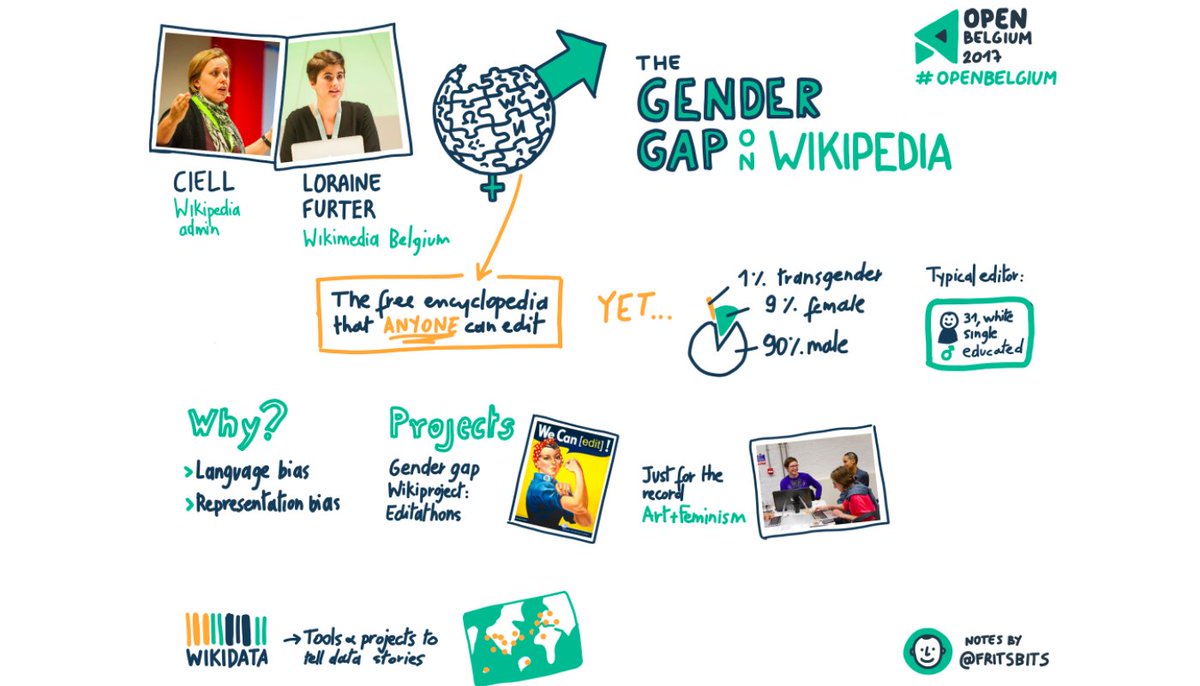 CIELL
Wikipedia
admin
LORAINE
FURTER
Wikimedia Belgium
W
И
THE
GENDER
GAP ON WIKIPEDIA
OPEN
BELGIUM
2017
#OPENBELGIUM
The free encyclopedia
that ANYONE can edit
YET...
1% transgender
9% female
90% male
Typical editor:
31, white
single
educated
Why?
> Language bias
> Representation bias
Projects
Gender gap
Wikiproject:
Editathons
We Can [edit]!
Just for the
record
Art+Feminism
WIKIDATA
→ Tools & projects to
tell data stories
NOTES BY
@FRITSBITS